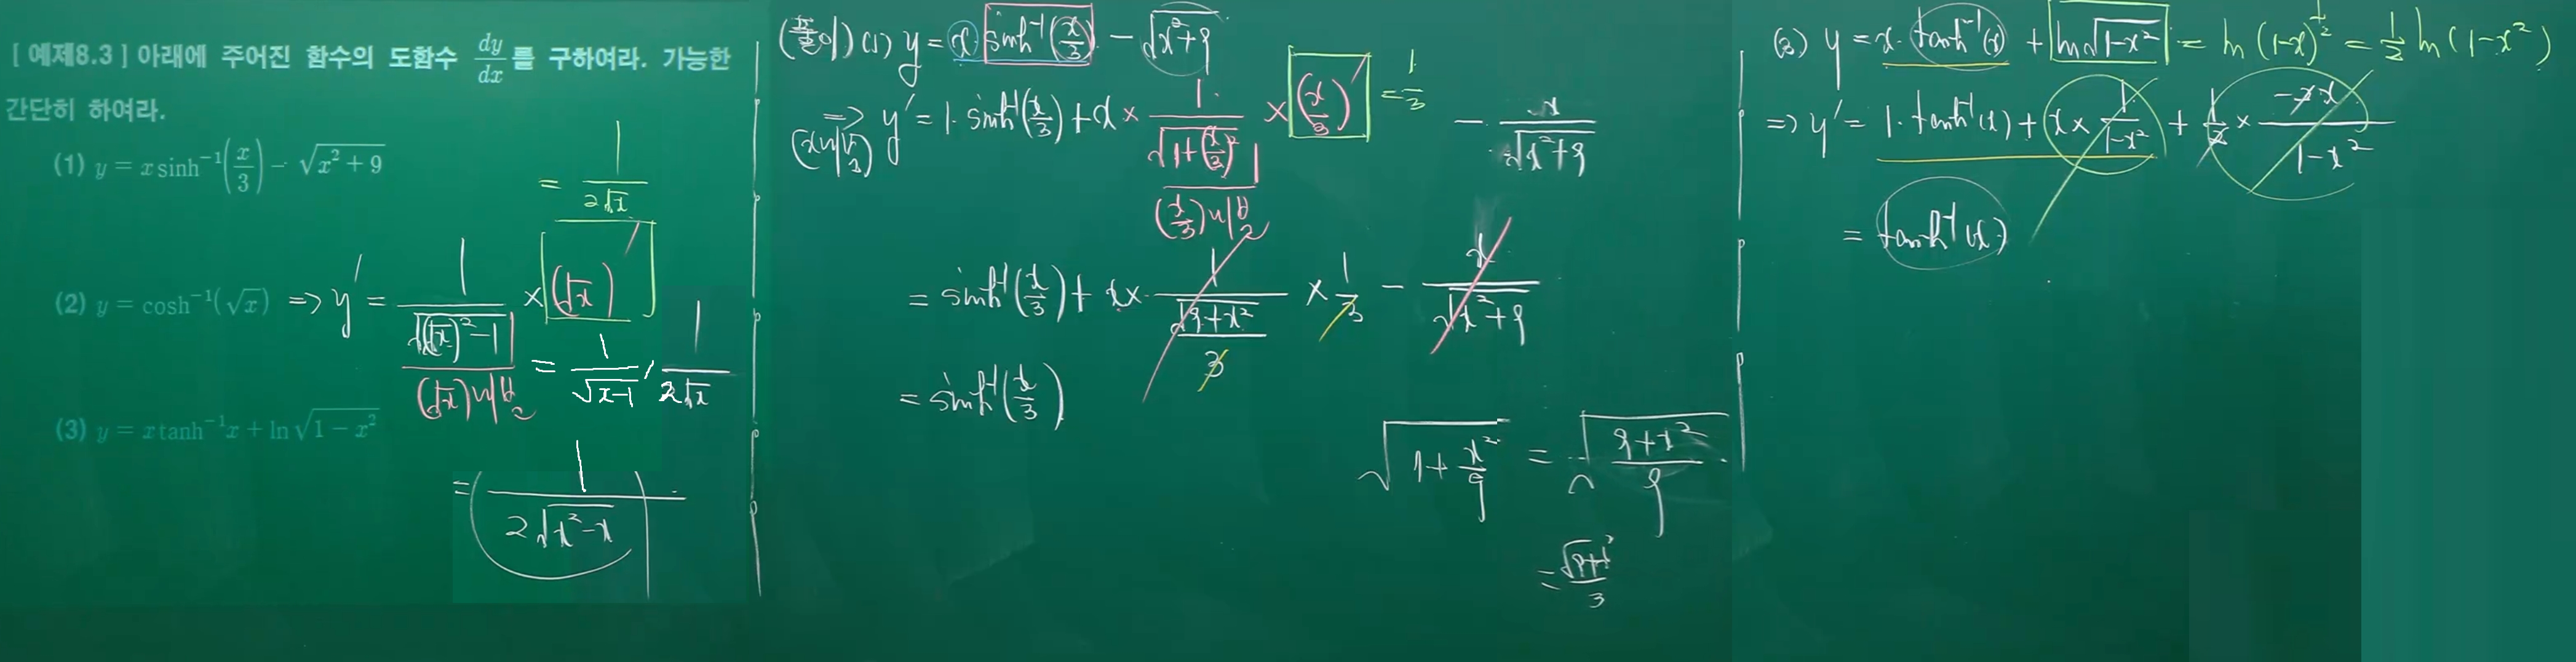 [ 예제8.3 ] 아래에 주어진 함수의 도함수 dy/dx 를 구하여라. 가능한
간단히 하여라.
(1) y = x sinh⁻¹(x/3) − √(x² + 9)
(2) y = cosh⁻¹(√x) ⇒ y′ = 1/√((√x)² − 1) × (√x)′
= 1/(2√x)
(√x)에 대한
= 1/√(x−1) · 1/(2√x)
= 1/(2√(x² − x))
(3) y = x tanh⁻¹x + ln√(1 − x²)
(풀이) (1) y = x sinh⁻¹(x/3) − √(x²+9)
⇒ y′ = 1·sinh⁻¹(x/3) + x × 1/√(1+(x/3)²) × (x/3)′ = 1/3 − x/√(x²+9)
= sinh⁻¹(x/3) + x × 1/(√(9+x²)/3) × 1/3 − x/√(x²+9)
= sinh⁻¹(x/3)
√(1 + x²/9) = √((9+x²)/9)
= √(9+x²)/3
(3) y = x·tanh⁻¹(x) + ln√(1−x²) = ln(1−x)^(1/2) = 1/2 ln(1−x²)
⇒ y′ = 1·tanh⁻¹(x) + x × 1/(1−x²) + 1/2 × −2x/(1−x²)
= tanh⁻¹(x)